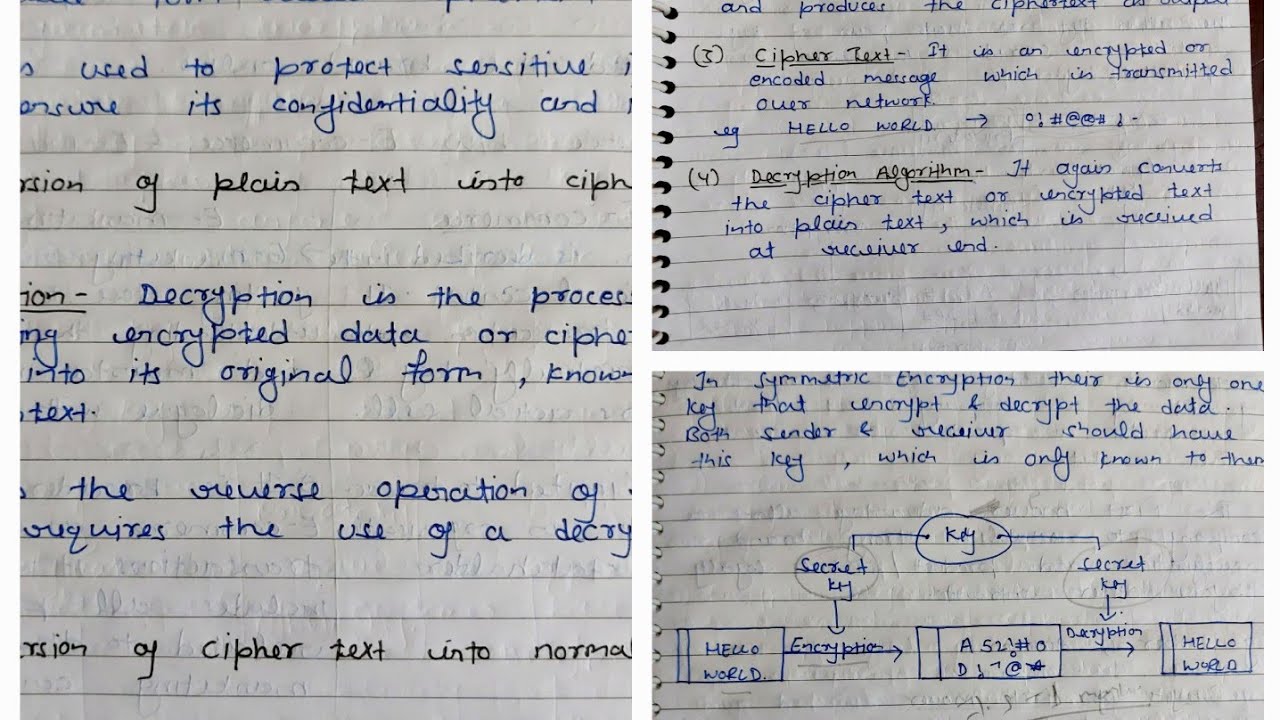 used to protect sensitive
ensure its confidentiality and
rsion of plain text into ciph
ion- Decryption is the proces
ing encrypted data or ciphe
into its original form, known
text.
the reverse operation of
requires the use of a decry
rsion of cipher text into normal
and produces the ciphertext as output
(3) Cipher Text- It is an encrypted or
encoded message which is transmitted
over network.
eg HELLO WORLD →
(4) Decryption Algorithm- It again converts
the cipher text or encrypted text
into plain text, which is received
at receiver end.
In symmetric Encryption their is only one
key that encrypt & decrypt the data.
Both sender & receiver should have
this key, which is only known to them
Key
Secret
key
Secret
key
HELLO
WORLD.
Encryption
A52!#0
Decryption
HELLO
WORLD